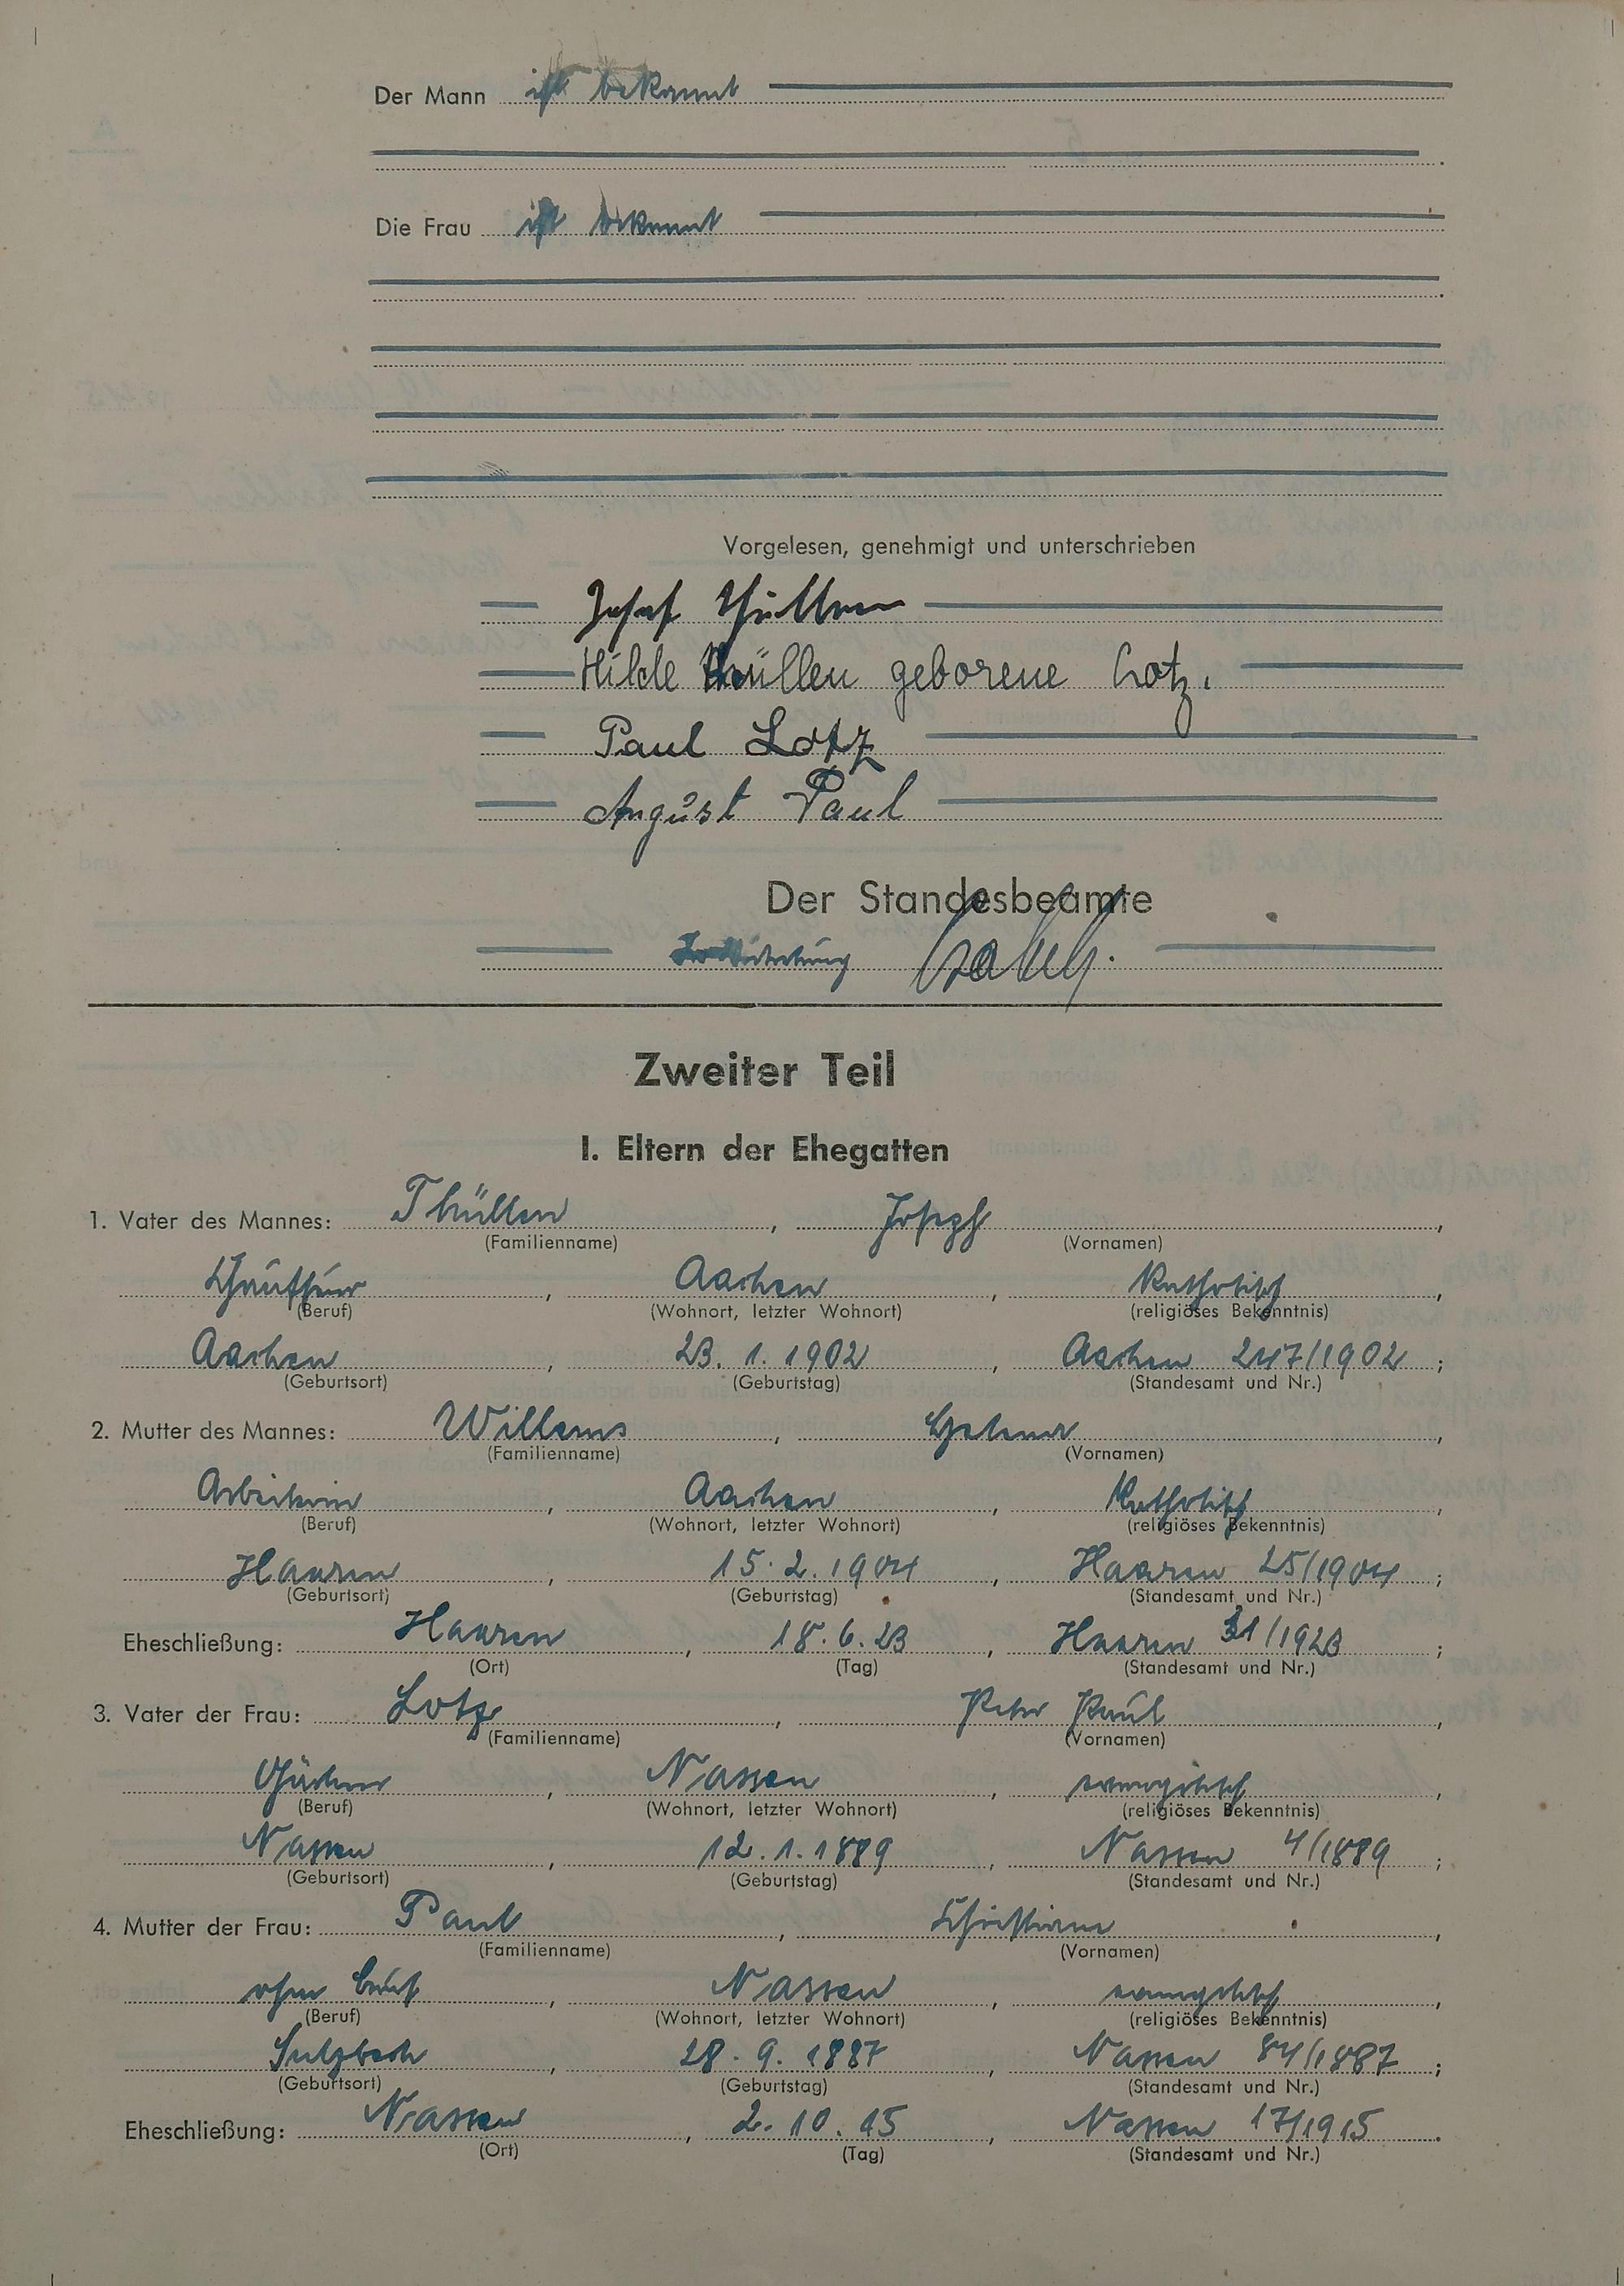 Der Mann ist bekannt
Die Frau ist bekannt
Vorgelesen, genehmigt und unterschrieben
Josef Thüllen
Hilde Thüllen geborene Lotz.
Paul Lotz
August Paul
Der Standesbeamte
In Vertretung
Zweiter Teil
I. Eltern der Ehegatten
1. Vater des Mannes: Thüllen, Joseph,
(Familienname) (Vornamen)
Chauffeur, Aachen, Katholisch,
(Beruf) (Wohnort, letzter Wohnort) (religiöses Bekenntnis)
Aachen, 23. 1. 1902, Aachen 247/1902;
(Geburtsort) (Geburtstag) (Standesamt und Nr.)
2. Mutter des Mannes: Willems,
(Familienname) (Vornamen)
Arbeiterin, Aachen, Katholisch,
(Beruf) (Wohnort, letzter Wohnort) (religiöses Bekenntnis)
Haaren, 15. 2. 1904, Haaren 25/1904;
(Geburtsort) (Geburtstag) (Standesamt und Nr.)
Eheschließung: Haaren, 18. 6. 23, Haaren 31/1923;
(Ort) (Tag) (Standesamt und Nr.)
3. Vater der Frau: Lotz, Peter Paul,
(Familienname) (Vornamen)
Gärtner, Nassen, evangelisch,
(Beruf) (Wohnort, letzter Wohnort) (religiöses Bekenntnis)
Nassen, 12. 1. 1889, Nassen 4/1889;
(Geburtsort) (Geburtstag) (Standesamt und Nr.)
4. Mutter der Frau: Paul, Christiane,
(Familienname) (Vornamen)
ohne Beruf, Nassen, evangelisch,
(Beruf) (Wohnort, letzter Wohnort) (religiöses Bekenntnis)
Sulzbach, 28. 9. 1887, Nassen 84/1887;
(Geburtsort) (Geburtstag) (Standesamt und Nr.)
Eheschließung: Nassen, 2. 10. 15, Nassen 17/1915.
(Ort) (Tag) (Standesamt und Nr.)